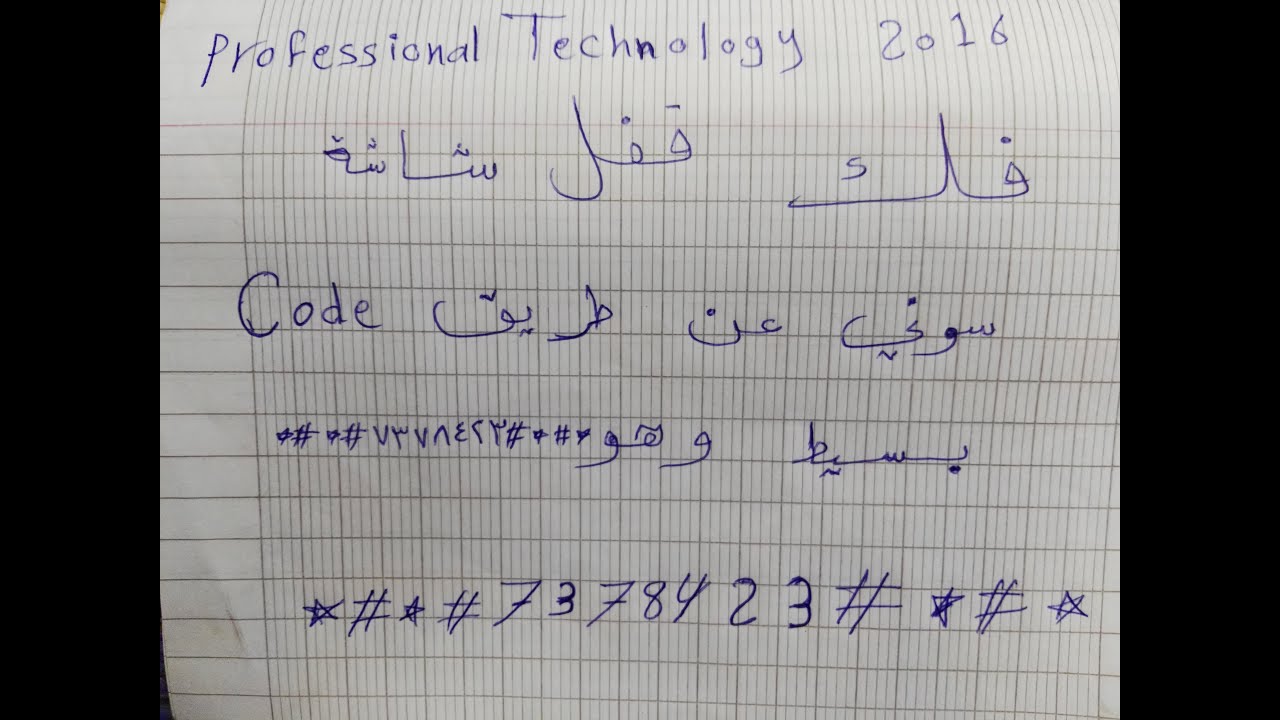 Professional Technology 2016
فك قفل شاشة
سوني عن طريق Code
بسيط وهو *#*#٧٣٧٨٤٢٣#*#*
*#*#7378423#*#*